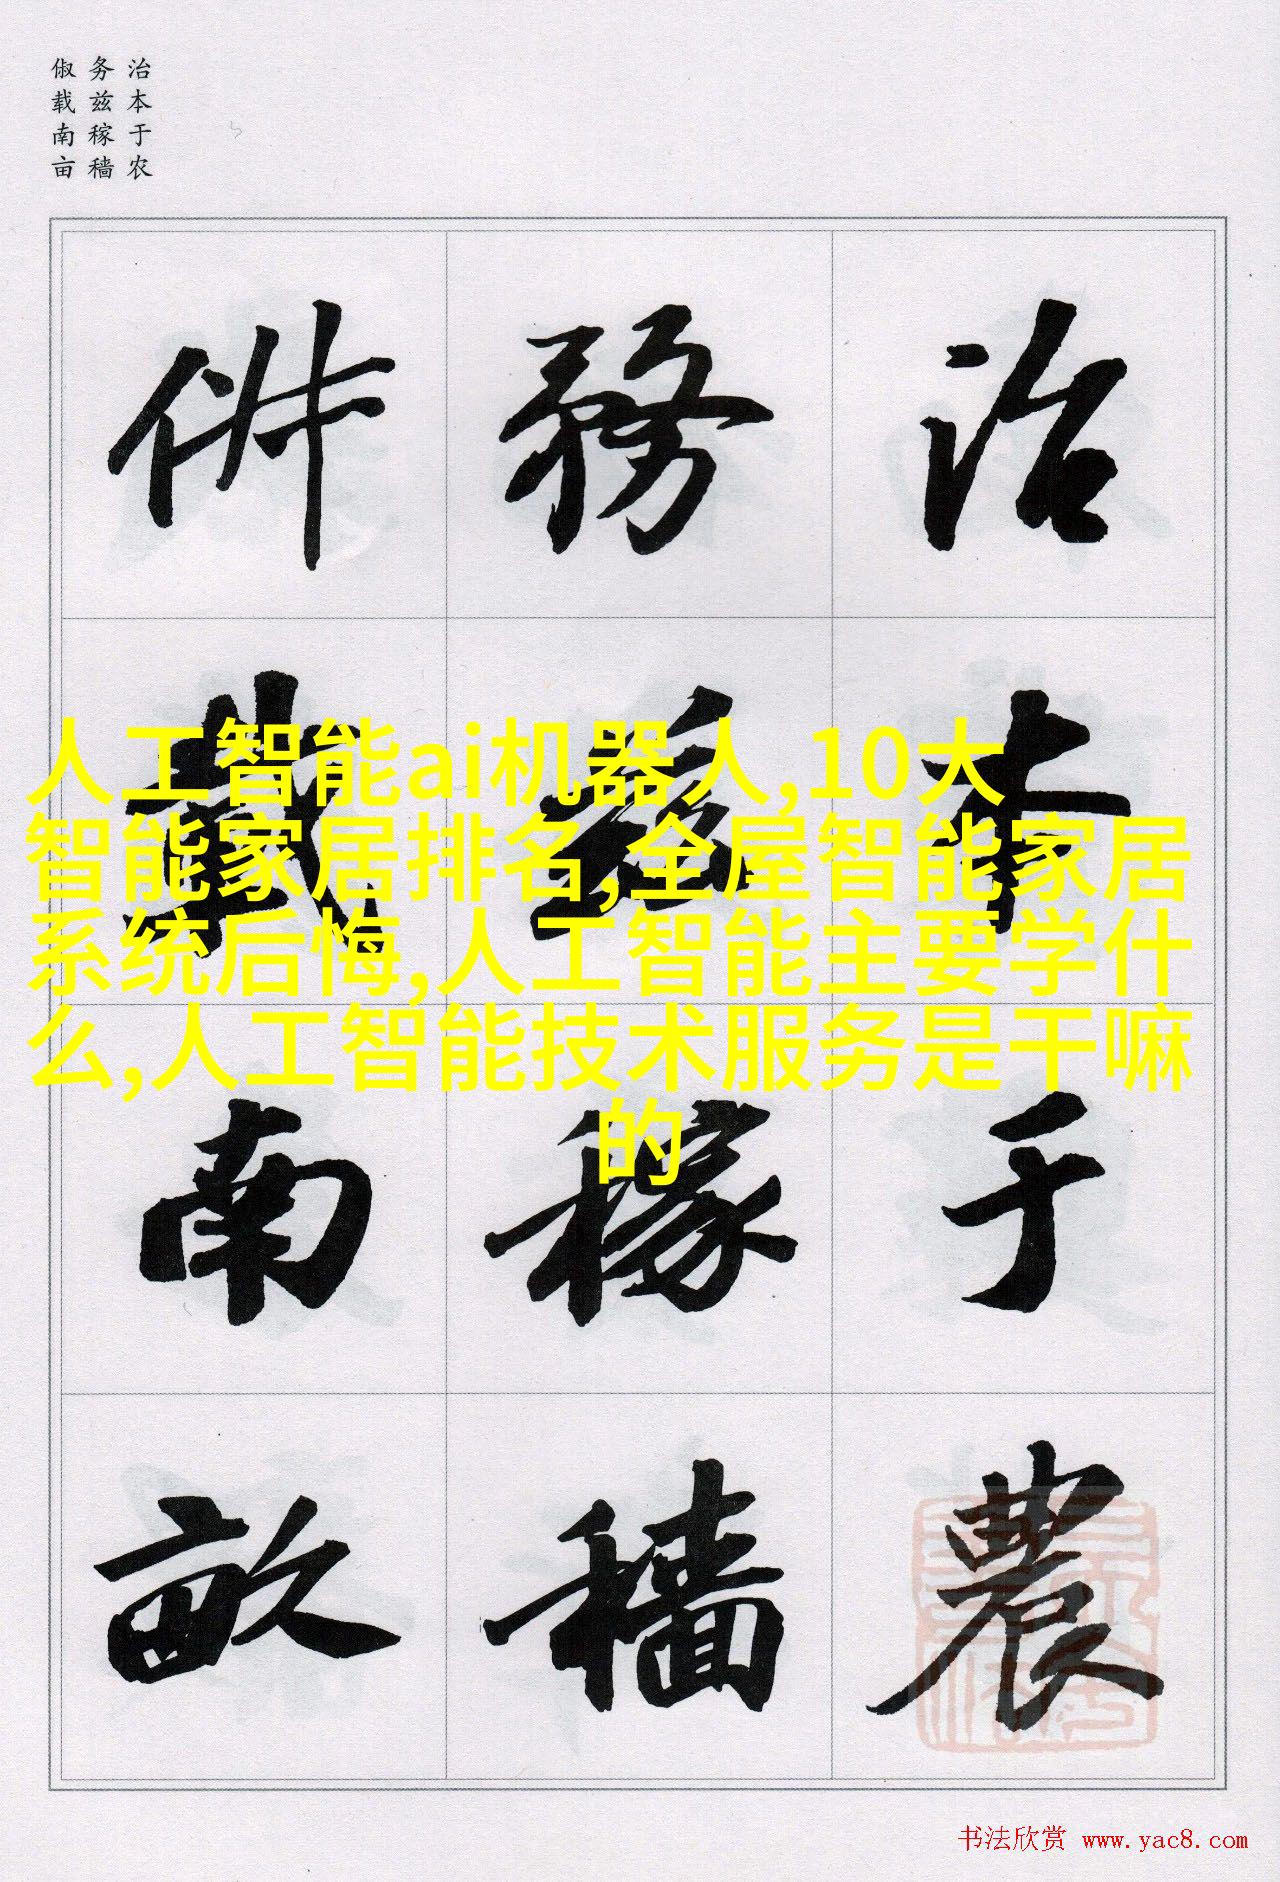 治本于农
务兹稼穑
俶载南亩
治本于農
務兹稼穡
俶载南畝
人工智能ai机器人,10大
智能家居排名,全屋智能家居
系统后悔,人工智能主要学什
么,人工智能技术服务是干嘛
的
书法欣赏 www.yac8.com